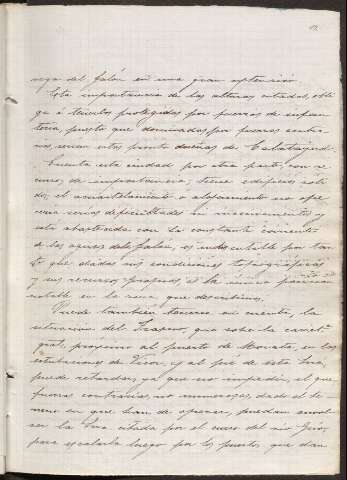 vega del Jalón en una gran extensión.
Esta importancia de las alturas citadas, obli-
ga á tenerlas protegidas por fuerzas de infan-
tería, puesto que dominadas por fuerzas contra-
rias, serían estas pronto dueñas de Calatayud.
Cuenta esta ciudad por otra parte, con re-
cursos de importancia; tiene edificios sóli-
dos; el acuartelamiento o alojamiento no ofre-
cería serias dificultades ni inconvenientes y
está abastecida con la constante corriente
de las aguas del Jalón, es indiscutible por tan-
to que dadas sus condiciones topográficas
y sus recursos propios, es la única posición
notable en la zona que describimos.
Puede también tenerse en cuenta, la
situación del Frasno, que sobre la carret.
gral, próximo al puerto de Morata, en las
estribaciones de Vicor, y al pié de esta Sierra,
puede retardar, ya que no impedir, el que
fuerzas contrarias, no numerosas, dado el te-
rreno en que han de operar, puedan envol-
ver la Sierra citada por el curso del río Grío,
para escalarla luego por los puertos que dan